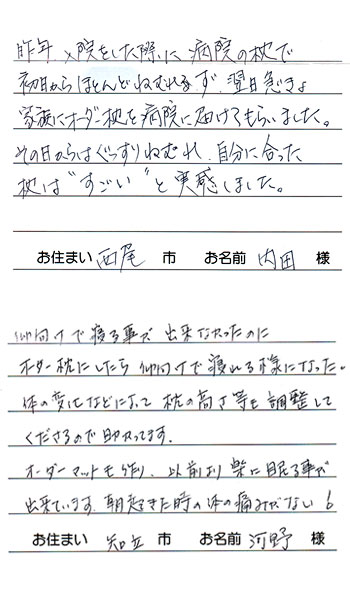 昨年、入院をした際に病院の枕で
初日からほとんどねむれず、翌日急きょ
家族にオーダー枕を病院に届けてもらいました。
その日からはぐっすりねむれ、自分に合った
枕は"すごい"と実感しました。
お住まい 西尾 市 お名前 内田 様
仰向けで寝る事が出来なかったのに
オーダー枕にしたら仰向けで寝れる様になった。
体の変化などによって枕の高さ等も調整して
くださるので助かってます。
オーダーマットも作り、以前より楽に眠る事が
出来ています。朝起きた時の体の痛みがない!
お住まい 知立 市 お名前 河野 様